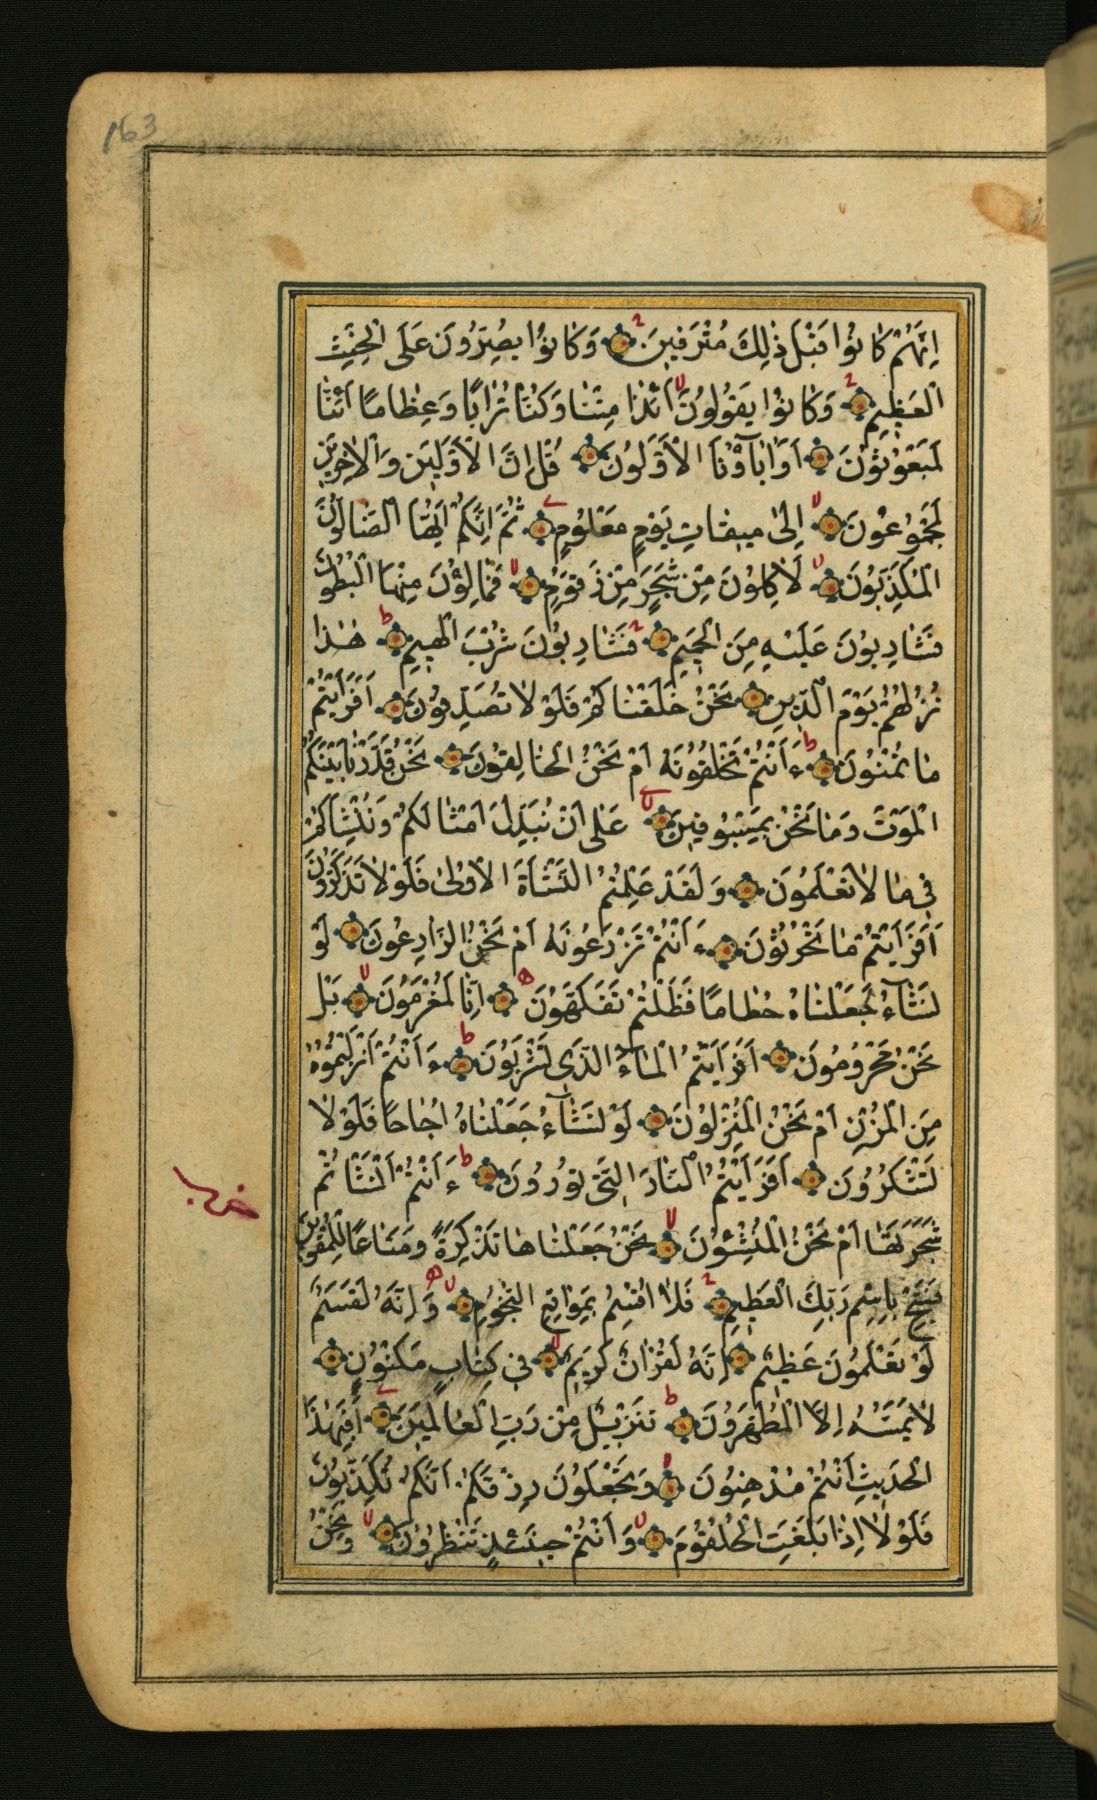 163
اِنَّهُمْ كَانُوا قَبْلَ ذٰلِكَ مُتْرَفِينَ وَكَانُوا يُصِرُّونَ عَلَى الْحِنْثِ
الْعَظِيمِ وَكَانُوا يَقُولُونَ اَئِذَا مِتْنَا وَكُنَّا تُرَابًا وَعِظَامًا اَئِنَّا
لَمَبْعُوثُونَ اَوَاٰبَآؤُنَا الْاَوَّلُونَ قُلْ اِنَّ الْاَوَّلِينَ وَالْاٰخِرِينَ
لَمَجْمُوعُونَ اِلٰى مِيقَاتِ يَوْمٍ مَعْلُومٍ ثُمَّ اِنَّكُمْ اَيُّهَا الضَّالُّونَ
الْمُكَذِّبُونَ لَاٰكِلُونَ مِنْ شَجَرٍ مِنْ زَقُّومٍ فَمَالِؤُنَ مِنْهَا الْبُطُونَ
فَشَارِبُونَ عَلَيْهِ مِنَ الْحَمِيمِ فَشَارِبُونَ شُرْبَ الْهِيمِ هٰذَا
نُزُلُهُمْ يَوْمَ الدِّينِ نَحْنُ خَلَقْنَاكُمْ فَلَوْلَا تُصَدِّقُونَ اَفَرَاَيْتُمْ
مَا تُمْنُونَ ءَاَنْتُمْ تَخْلُقُونَهُ اَمْ نَحْنُ الْخَالِقُونَ نَحْنُ قَدَّرْنَا بَيْنَكُمُ
الْمَوْتَ وَمَا نَحْنُ بِمَسْبُوقِينَ عَلٰى اَنْ نُبَدِّلَ اَمْثَالَكُمْ وَنُنْشِئَكُمْ
فِى مَا لَا تَعْلَمُونَ وَلَقَدْ عَلِمْتُمُ النَّشْاَةَ الْاُولٰى فَلَوْلَا تَذَكَّرُونَ
اَفَرَاَيْتُمْ مَا تَحْرُثُونَ ءَاَنْتُمْ تَزْرَعُونَهُ اَمْ نَحْنُ الزَّارِعُونَ لَوْ
نَشَآءُ لَجَعَلْنَاهُ حُطَامًا فَظَلْتُمْ تَفَكَّهُونَ اِنَّا لَمُغْرَمُونَ بَلْ
نَحْنُ مَحْرُومُونَ اَفَرَاَيْتُمُ الْمَاءَ الَّذِى تَشْرَبُونَ ءَاَنْتُمْ اَنْزَلْتُمُوهُ
مِنَ الْمُزْنِ اَمْ نَحْنُ الْمُنْزِلُونَ لَوْ نَشَآءُ جَعَلْنَاهُ اُجَاجًا فَلَوْلَا
تَشْكُرُونَ اَفَرَاَيْتُمُ النَّارَ الَّتِى تُورُونَ ءَاَنْتُمْ اَنْشَاْتُمْ
شَجَرَتَهَا اَمْ نَحْنُ الْمُنْشِؤُنَ نَحْنُ جَعَلْنَاهَا تَذْكِرَةً وَمَتَاعًا لِلْمُقْوِينَ
فَسَبِّحْ بِاسْمِ رَبِّكَ الْعَظِيمِ فَلَا اُقْسِمُ بِمَوَاقِعِ النُّجُومِ وَاِنَّهُ لَقَسَمٌ
لَوْ تَعْلَمُونَ عَظِيمٌ اِنَّهُ لَقُرْاٰنٌ كَرِيمٌ فِى كِتَابٍ مَكْنُونٍ
لَا يَمَسُّهُ اِلَّا الْمُطَهَّرُونَ تَنْزِيلٌ مِنْ رَبِّ الْعَالَمِينَ اَفَبِهٰذَا
الْحَدِيثِ اَنْتُمْ مُدْهِنُونَ وَتَجْعَلُونَ رِزْقَكُمْ اَنَّكُمْ تُكَذِّبُونَ
فَلَوْلَا اِذَا بَلَغَتِ الْحُلْقُومَ وَاَنْتُمْ حِينَئِذٍ تَنْظُرُونَ وَنَحْنُ